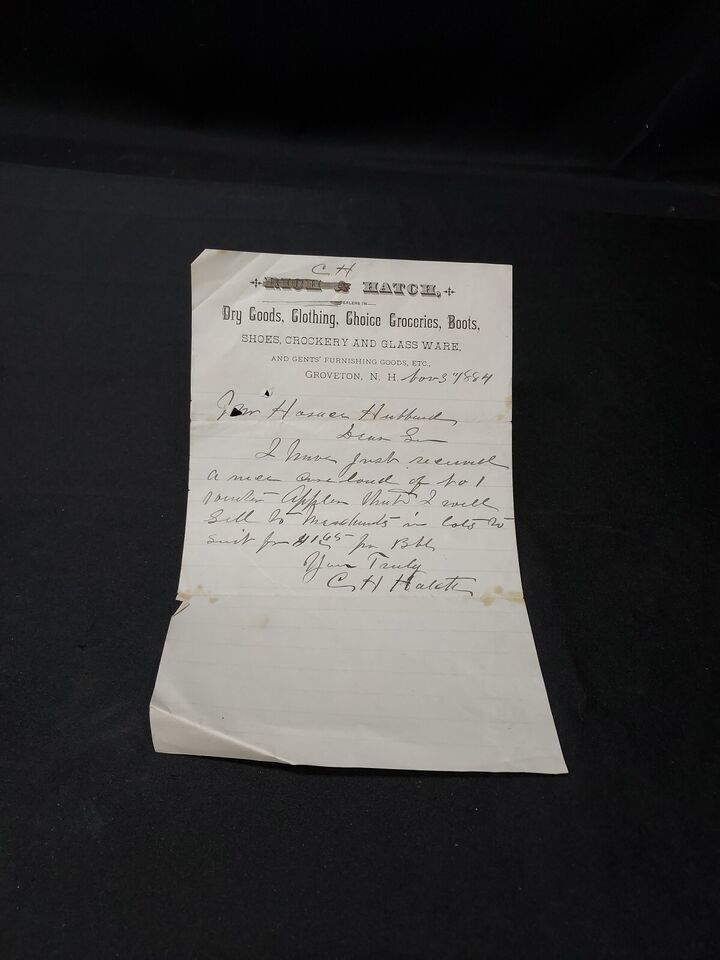 C H
RICH & HATCH,
DEALERS IN
Dry Goods, Clothing, Choice Groceries, Boots,
SHOES, CROCKERY AND GLASS WARE,
AND GENTS' FURNISHING GOODS, ETC.,
GROVETON, N. H. Nov 3 1884
Hubbard
Dear Sir
I have just received
a nice car load of No 1
winter Apples that I will
Sell to Merchants in lots to
suit for $1.65 per Bbl
Yours Truly
C H Hatch